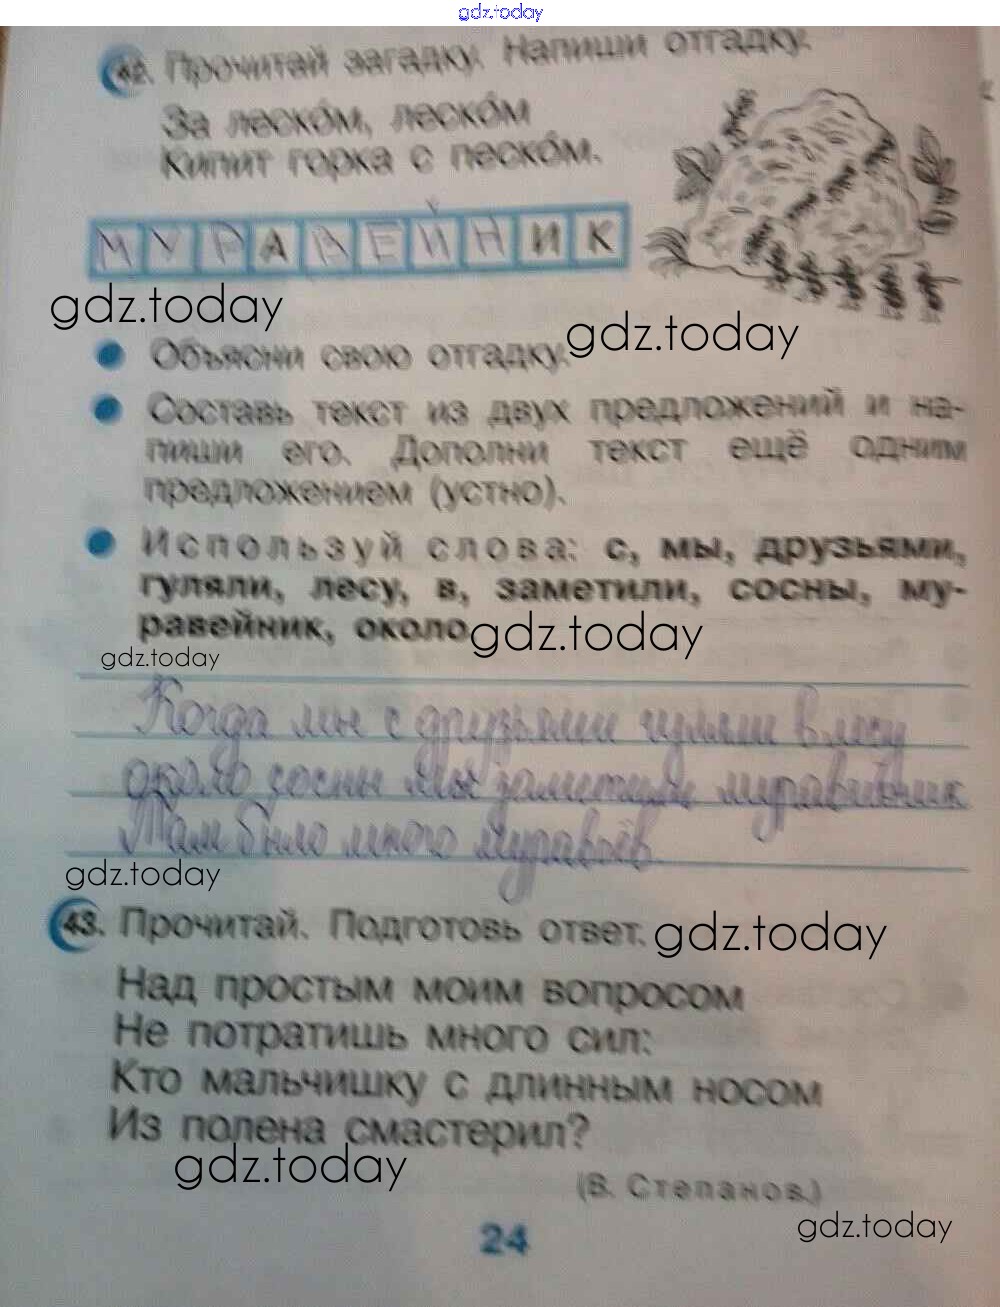 gdz.today
42. Прочитай загадку. Напиши отгадку.
За леско́м, леско́м
Кипит горка с песко́м.
МУРАВЕЙНИК
gdz.today
gdz.today
Объясни свою отгадку.
Составь текст из двух предложений и на-
пиши его. Дополни текст ещё одним
предложением (устно).
Используй слова: с, мы, друзьями,
гуляли, лесу, в, заметили, сосны, му-
равейник, около
gdz.today
gdz.today
Когда мы с друзьями гуляли в лесу
около сосны мы заметили муравейник
Там было много муравьёв.
gdz.today
43. Прочитай. Подготовь ответ.
gdz.today
Над простым моим вопросом
Не потратишь много сил:
Кто мальчишку с длинным носом
Из полена смастерил?
gdz.today
(В. Степанов.)
gdz.today
24